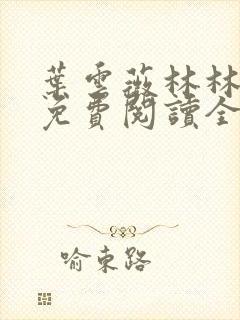 葉雲薇林林
免費閱讀全
喻東路